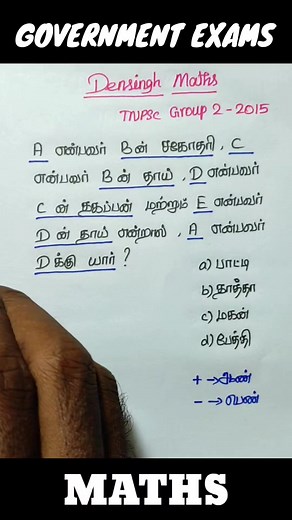 GOVERNMENT EXAMS
Densingh Maths
TNPSC Group 2 - 2015
A என்பவர் B ன் சகோதரி, C
என்பவர் B ன் தாய், D என்பவர்
C ன் தகப்பன் மற்றும் E என்பவர்
D ன் தாய் என்றால், A என்பவர்
D க்கு யார் ?
a) பாட்டி
b) தாத்தா
c) மகன்
d) பேத்தி
+ → ஆண்
- → பெண்
MATHS